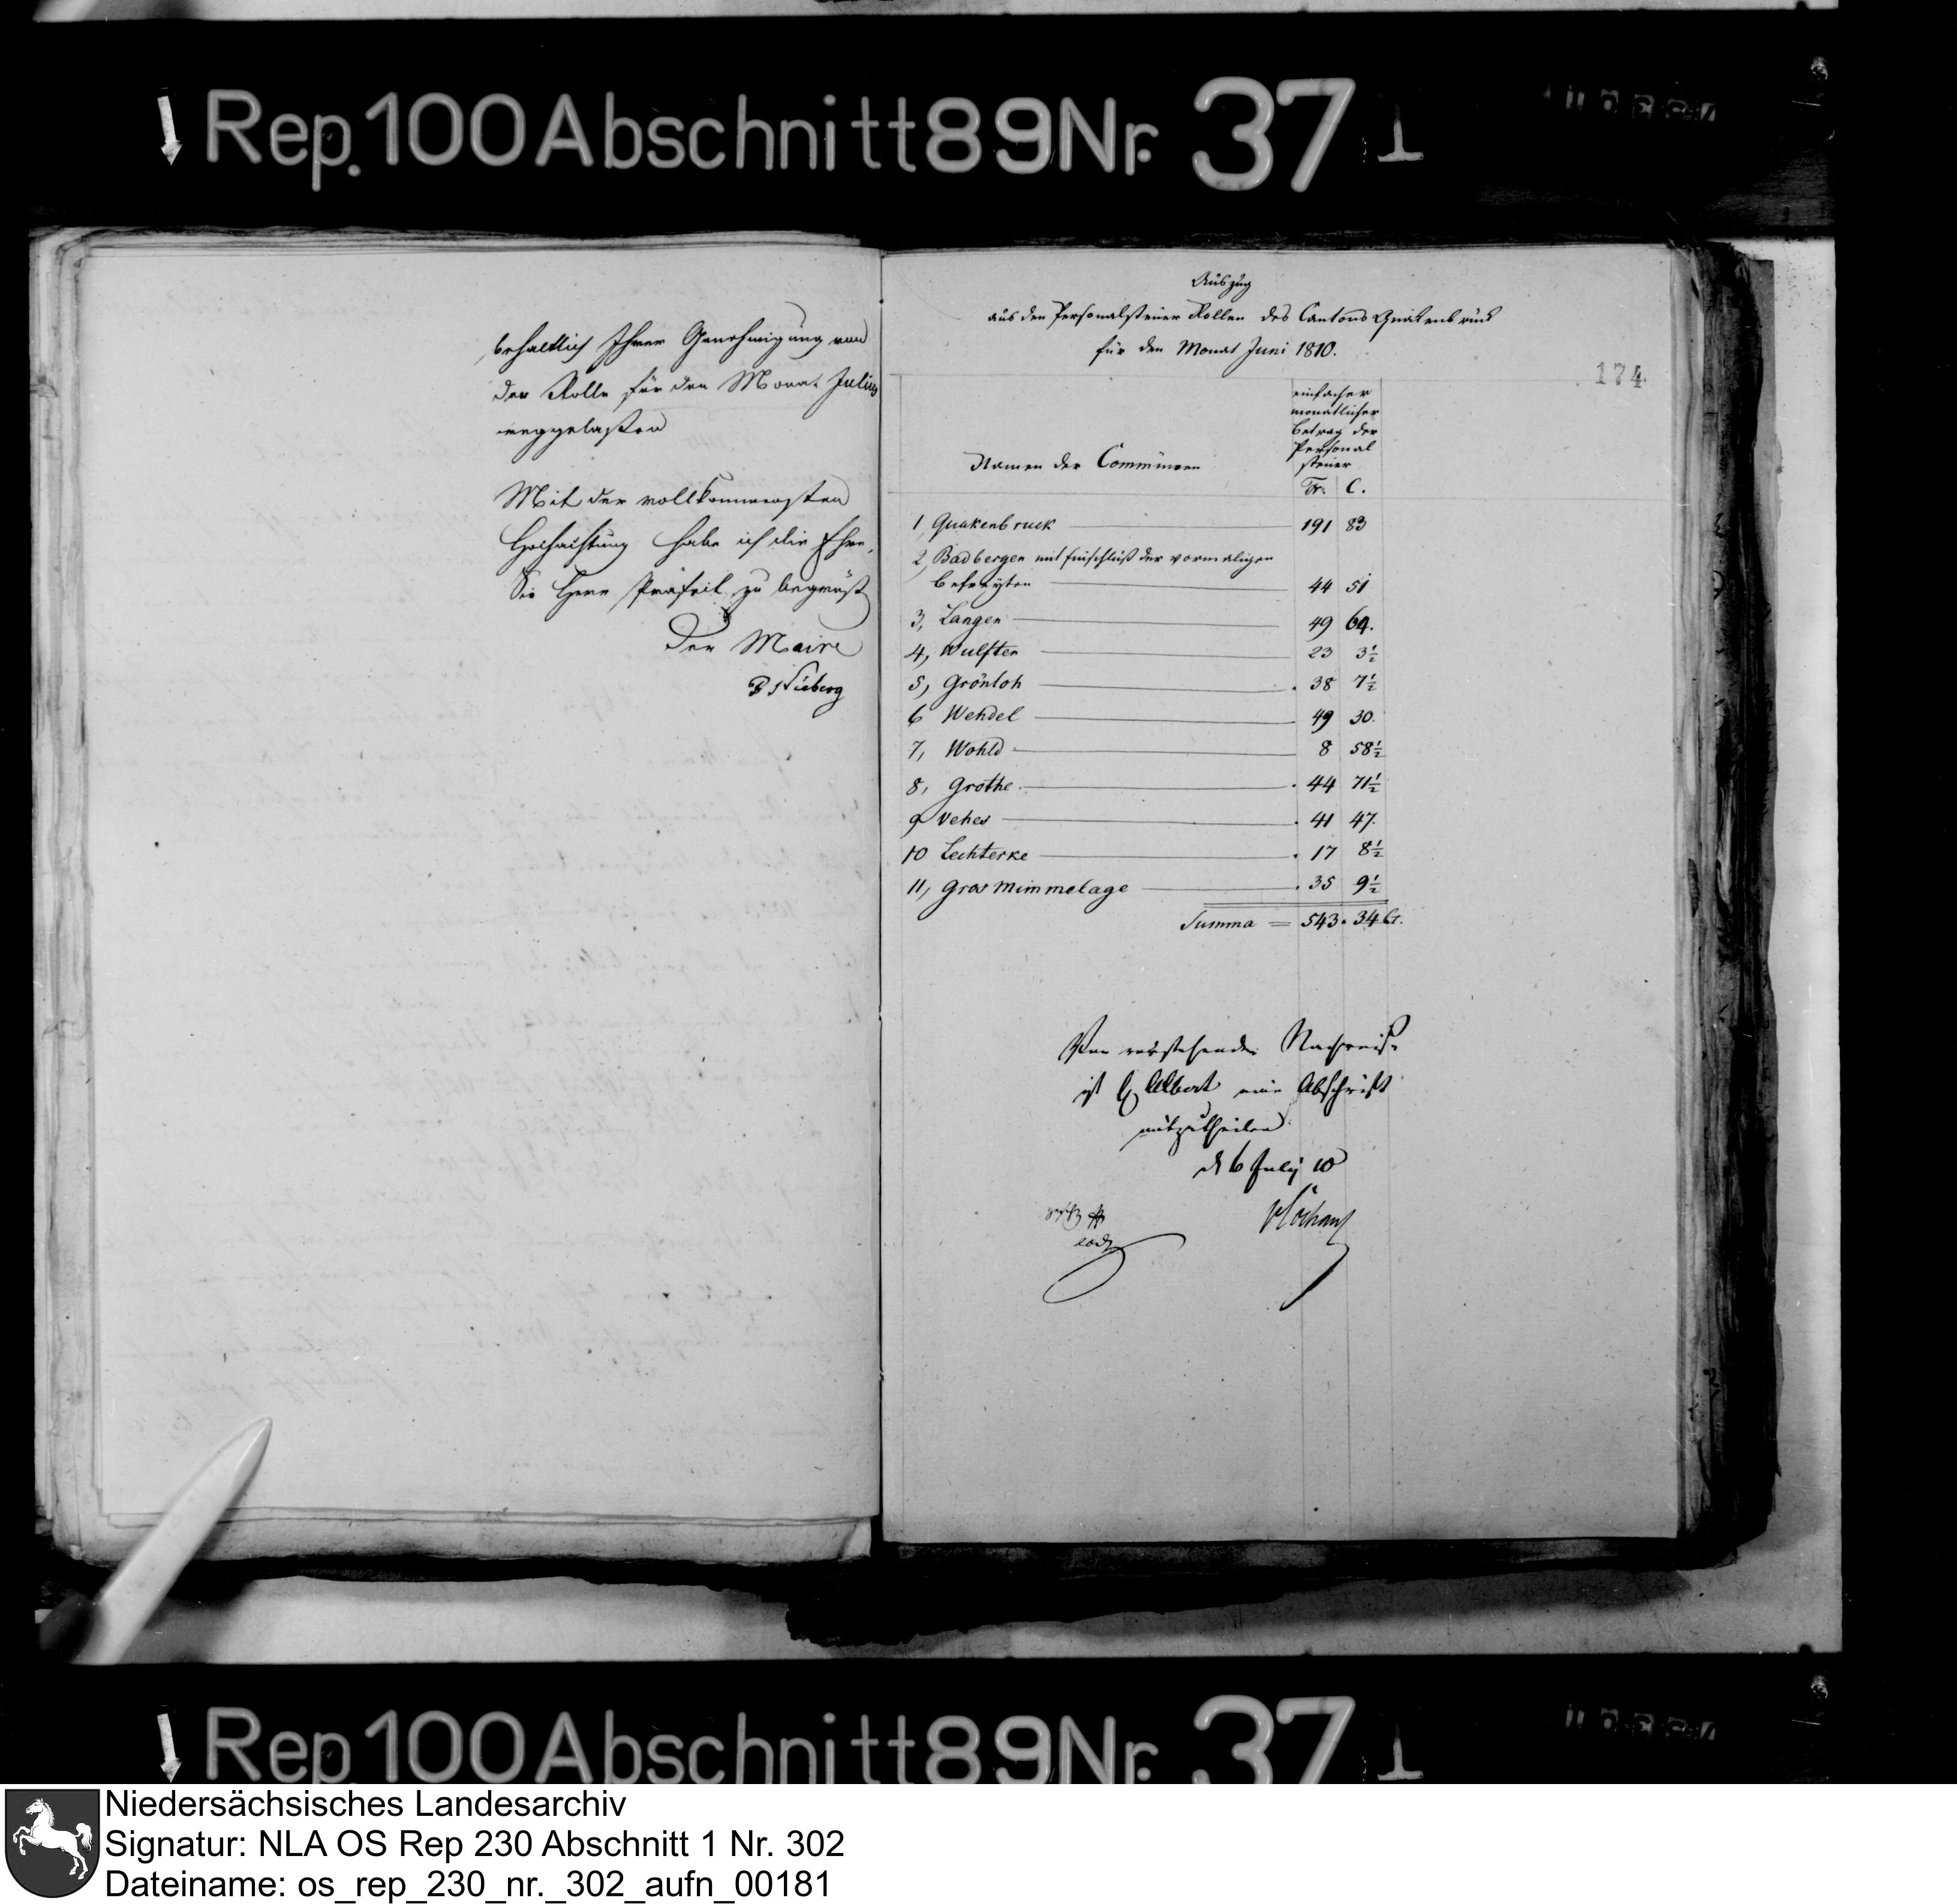 Rep. 100 Abschnitt 89 Nr. 37 1
behaltlich Ihrer Genehmigung von
der Rolle für den Monat Julius
weggelaßen
Mit der vollkommensten
Hochachtung habe ich die Ehre,
Sie Herr Präfect zu begrüß
Der Maire
Auszug
aus den Personalsteuer Rollen des Cantons Quakenbrück
für den Monat Juni 1810.
174
Namen der Communen
einfacher
monatlicher
Betrag der
Personal
steuer
Fr. C.
1, Quakenbruck 191 83
2, Badbergen mit Einschluß der vormaligen
Befreyten 44 51
3, Langen 49 64.
4, Wulften 23 3½
5, Grönloh 38 7½
6 Wehdel 49 30.
7, Wohld 8 58½
8, Grothe 44 71½
9 Vehes 41 47.
10 Lechterke 17 8½
11, Gros Mimmelage 35 9½
Summa = 543. 34 Ct.
Von vorstehender Nachweis.
ist eine Abschrift
mitzutheilen
d 6 July 10
Rep 100 Abschnitt 89 Nr. 37 1
Niedersächsisches Landesarchiv
Signatur: NLA OS Rep 230 Abschnitt 1 Nr. 302
Dateiname: os_rep_230_nr._302_aufn_00181